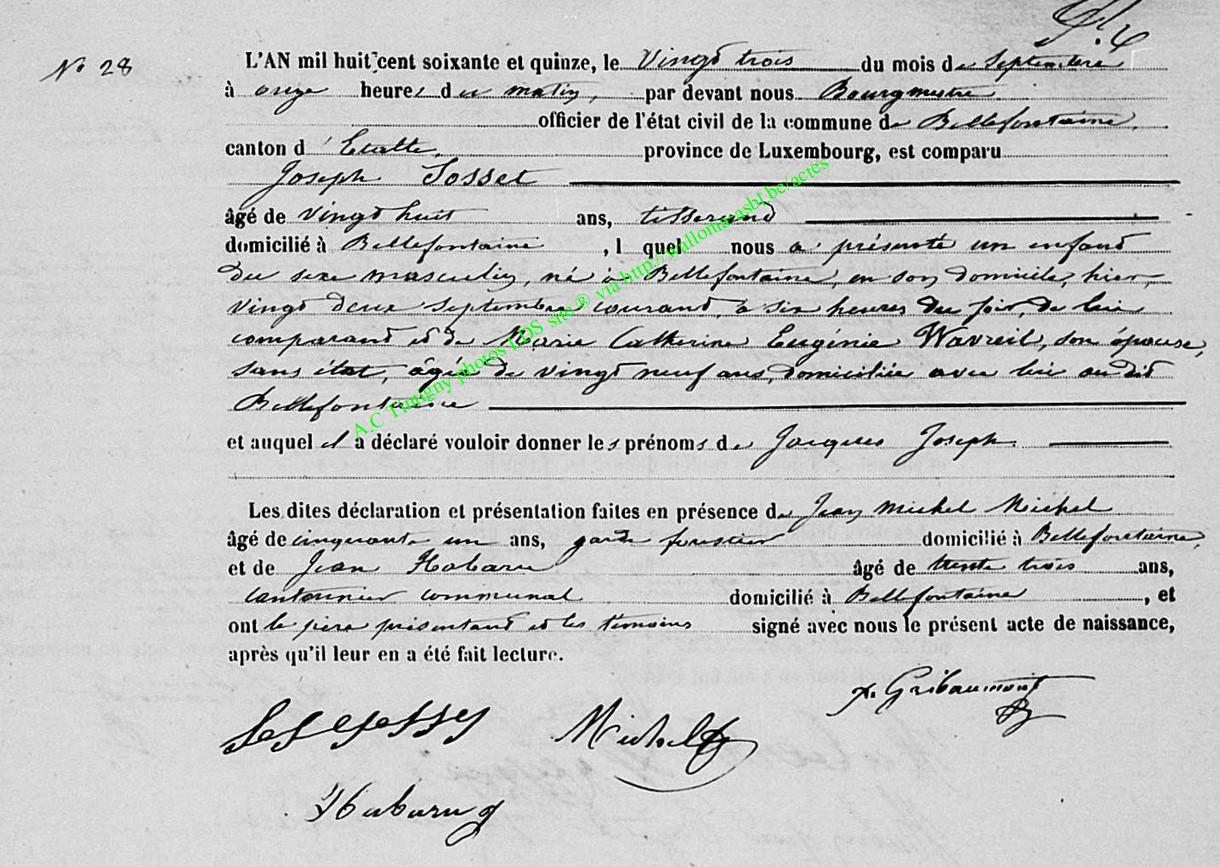 No 28
L'AN mil huit cent soixante et quinze, le vingt trois du mois de Septembre
à onze heures du matin, par devant nous Bourgmestre
officier de l'état civil de la commune de Bellefontaine,
canton d'Etalle, province de Luxembourg, est comparu
Joseph Sosset
âgé de vingt huit ans, tisserand
domicilié à Bellefontaine, l quel nous a présenté un enfant
du sexe masculin, né à Bellefontaine, en son domicile, hier,
vingt deux Septembre courant, à six heures du soir, de lui
comparant et de Marie Catherine Eugénie Wavreil, son épouse,
sans état, âgée de vingt neuf ans, domiciliée avec lui au dit
Bellefontaine
et auquel il a déclaré vouloir donner les prénoms de Jacques Joseph
Les dites déclaration et présentation faites en présence de Jean Michel Michel
âgé de cinquante un ans, garde forestier domicilié à Bellefontaine,
et de Jean Habaru âgé de trente trois ans,
cantonnier communal domicilié à Bellefontaine, et
ont le père présentant et les témoins signé avec nous le présent acte de naissance,
après qu'il leur en a été fait lecture.
Gribaumont
Michel
Habaru
A.C Tintigny photos LDS site ® via http://wallomasbl.be/actes